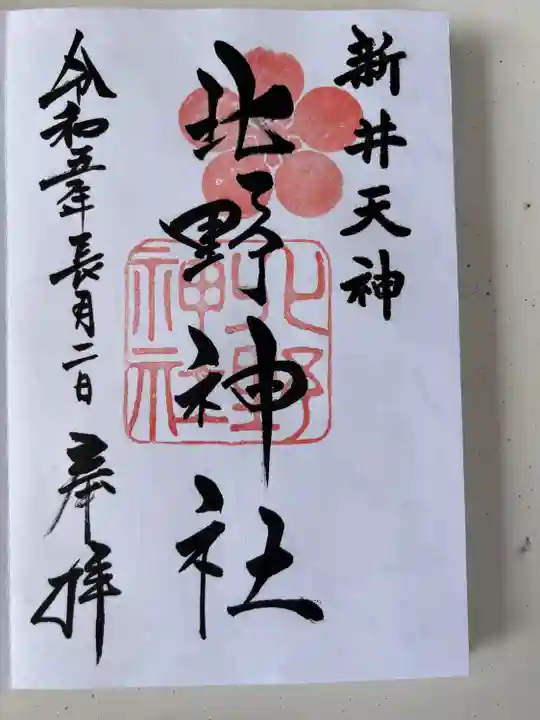 新井天神
北野神社
北野
神社
令和五年長月二日 奉拝